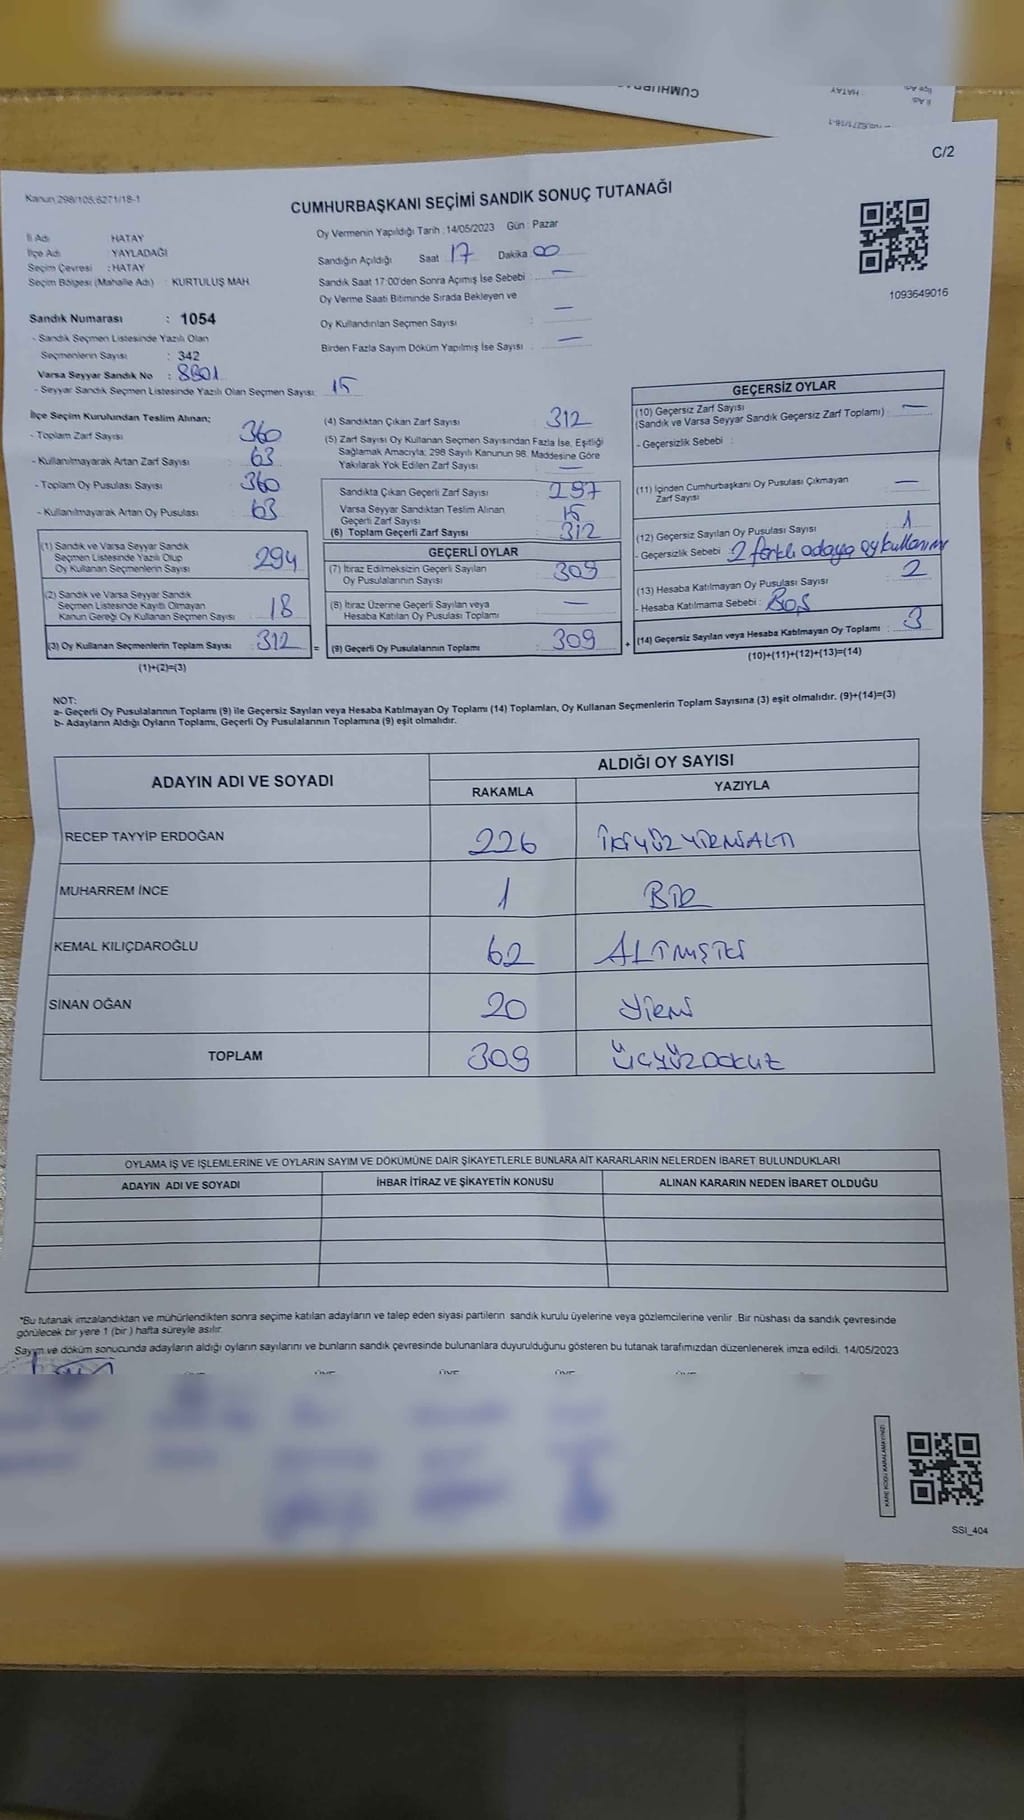 CUMHURBAŞ
HATAY
İl Adı
İlçe Adı
C/2
Kanun;298/105;6271/18-1
CUMHURBAŞKANI SEÇİMİ SANDIK SONUÇ TUTANAĞI
İl Adı HATAY
İlçe Adı : YAYLADAĞI
Seçim Çevresi : HATAY
Seçim Bölgesi (Mahalle Adı) : KURTULUŞ MAH.
Sandık Numarası : 1054
- Sandık Seçmen Listesinde Yazılı Olan
Seçmenlerin Sayısı : 342
Varsa Seyyar Sandık No : 8801
- Seyyar Sandık Seçmen Listesinde Yazılı Olan Seçmen Sayısı: 15
Oy Vermenin Yapıldığı Tarih : 14/05/2023 Gün : Pazar
Sandığın Açıldığı Saat 17 Dakika 00
Sandık Saat 17:00'den Sonra Açılmış İse Sebebi : —
Oy Verme Saati Bitiminde Sırada Bekleyen ve
Oy Kullandırılan Seçmen Sayısı : —
Birden Fazla Sayım Döküm Yapılmış İse Sayısı : —
1093649016
İlçe Seçim Kurulundan Teslim Alınan;
- Toplam Zarf Sayısı : 360
- Kullanılmayarak Artan Zarf Sayısı : 63
- Toplam Oy Pusulası Sayısı : 360
- Kullanılmayarak Artan Oy Pusulası : 63
(1) Sandık ve Varsa Seyyar Sandık
Seçmen Listesinde Yazılı Olup
Oy Kullanan Seçmenlerin Sayısı : 294
(2) Sandık ve Varsa Seyyar Sandık
Seçmen Listesinde Kayıtlı Olmayan
Kanun Gereği Oy Kullanan Seçmen Sayısı : 18
(3) Oy Kullanan Seçmenlerin Toplam Sayısı : 312 =
(1)+(2)=(3)
(4) Sandıktan Çıkan Zarf Sayısı : 312
(5) Zarf Sayısı Oy Kullanan Seçmen Sayısından Fazla İse, Eşitliği
Sağlamak Amacıyla; 298 Sayılı Kanunun 98. Maddesine Göre
Yakılarak Yok Edilen Zarf Sayısı : —
Sandıkta Çıkan Geçerli Zarf Sayısı : 297
Varsa Seyyar Sandıktan Teslim Alınan
Geçerli Zarf Sayısı : 15
(6) Toplam Geçerli Zarf Sayısı : 312
GEÇERLİ OYLAR
(7) İtiraz Edilmeksizin Geçerli Sayılan
Oy Pusulalarının Sayısı : 309
(8) İtiraz Üzerine Geçerli Sayılan veya
Hesaba Katılan Oy Pusulası Toplamı : —
(9) Geçerli Oy Pusulalarının Toplamı : 309 +
GEÇERSİZ OYLAR
(10) Geçersiz Zarf Sayısı
(Sandık ve Varsa Seyyar Sandık Geçersiz Zarf Toplamı) : —
- Geçersizlik Sebebi :
(11) İçinden Cumhurbaşkanı Oy Pusulası Çıkmayan
Zarf Sayısı : —
(12) Geçersiz Sayılan Oy Pusulası Sayısı : 1
- Geçersizlik Sebebi : 2 farklı adaya oy kullanımı
(13) Hesaba Katılmayan Oy Pusulası Sayısı : 2
- Hesaba Katılmama Sebebi : BOŞ
(14) Geçersiz Sayılan veya Hesaba Katılmayan Oy Toplamı : 3
(10)+(11)+(12)+(13)=(14)
NOT:
a- Geçerli Oy Pusulalarının Toplamı (9) ile Geçersiz Sayılan veya Hesaba Katılmayan Oy Toplamı (14) Toplamları, Oy Kullanan Seçmenlerin Toplam Sayısına (3) eşit olmalıdır. (9)+(14)=(3)
b- Adayların Aldığı Oyların Toplamı, Geçerli Oy Pusulalarının Toplamına (9) eşit olmalıdır.
ADAYIN ADI VE SOYADI ALDIĞI OY SAYISI
RAKAMLA YAZIYLA
RECEP TAYYİP ERDOĞAN 226 İKİYÜZYİRMİALTI
MUHARREM İNCE 1 BİR
KEMAL KILIÇDAROĞLU 62 ALTMIŞİKİ
SİNAN OĞAN 20 YİRMİ
TOPLAM 309 ÜÇYÜZDOKUZ
OYLAMA İŞ VE İŞLEMLERİNE VE OYLARIN SAYIM VE DÖKÜMÜNE DAİR ŞİKAYETLERLE BUNLARA AİT KARARLARIN NELERDEN İBARET BULUNDUKLARI
ADAYIN ADI VE SOYADI İHBAR İTİRAZ VE ŞİKAYETİN KONUSU ALINAN KARARIN NEDEN İBARET OLDUĞU
*Bu tutanak imzalandıktan ve mühürlendikten sonra seçime katılan adayların ve talep eden siyasi partilerin sandık kurulu üyelerine veya gözlemcilerine verilir. Bir nüshası da sandık çevresinde
görülecek bir yere 1 (bir) hafta süreyle asılır.
Sayım ve döküm sonucunda adayların aldığı oyların sayılarını ve bunların sandık çevresinde bulunanlara duyurulduğunu gösteren bu tutanak tarafımızdan düzenlenerek imza edildi. 14/05/2023
KARE KODU KARALAMAYINIZ!
SSI_404